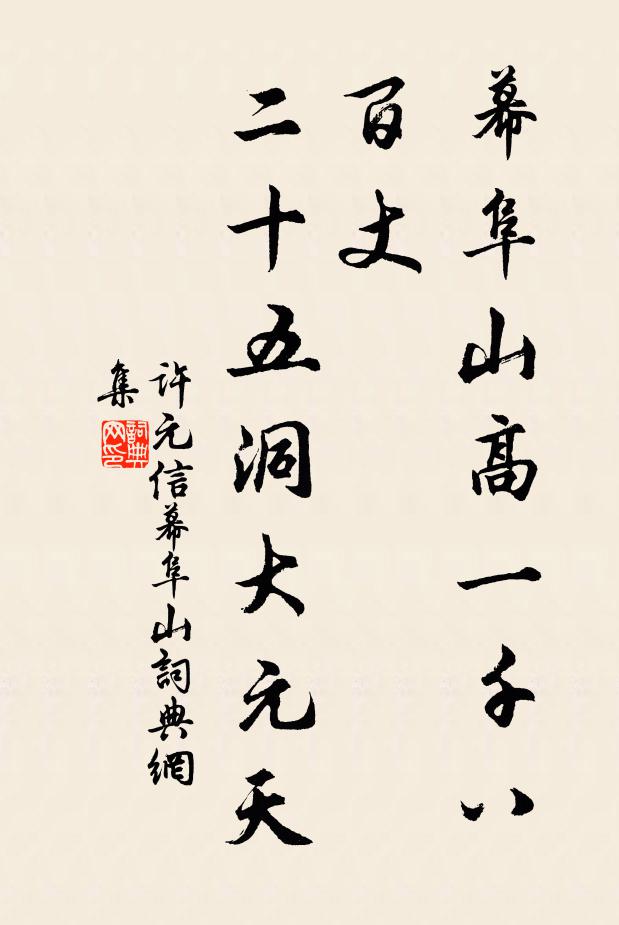 幕阜山高一千八
百丈
二十五洞大元天
許元信幕阜山詞典網
集
詞典
网印